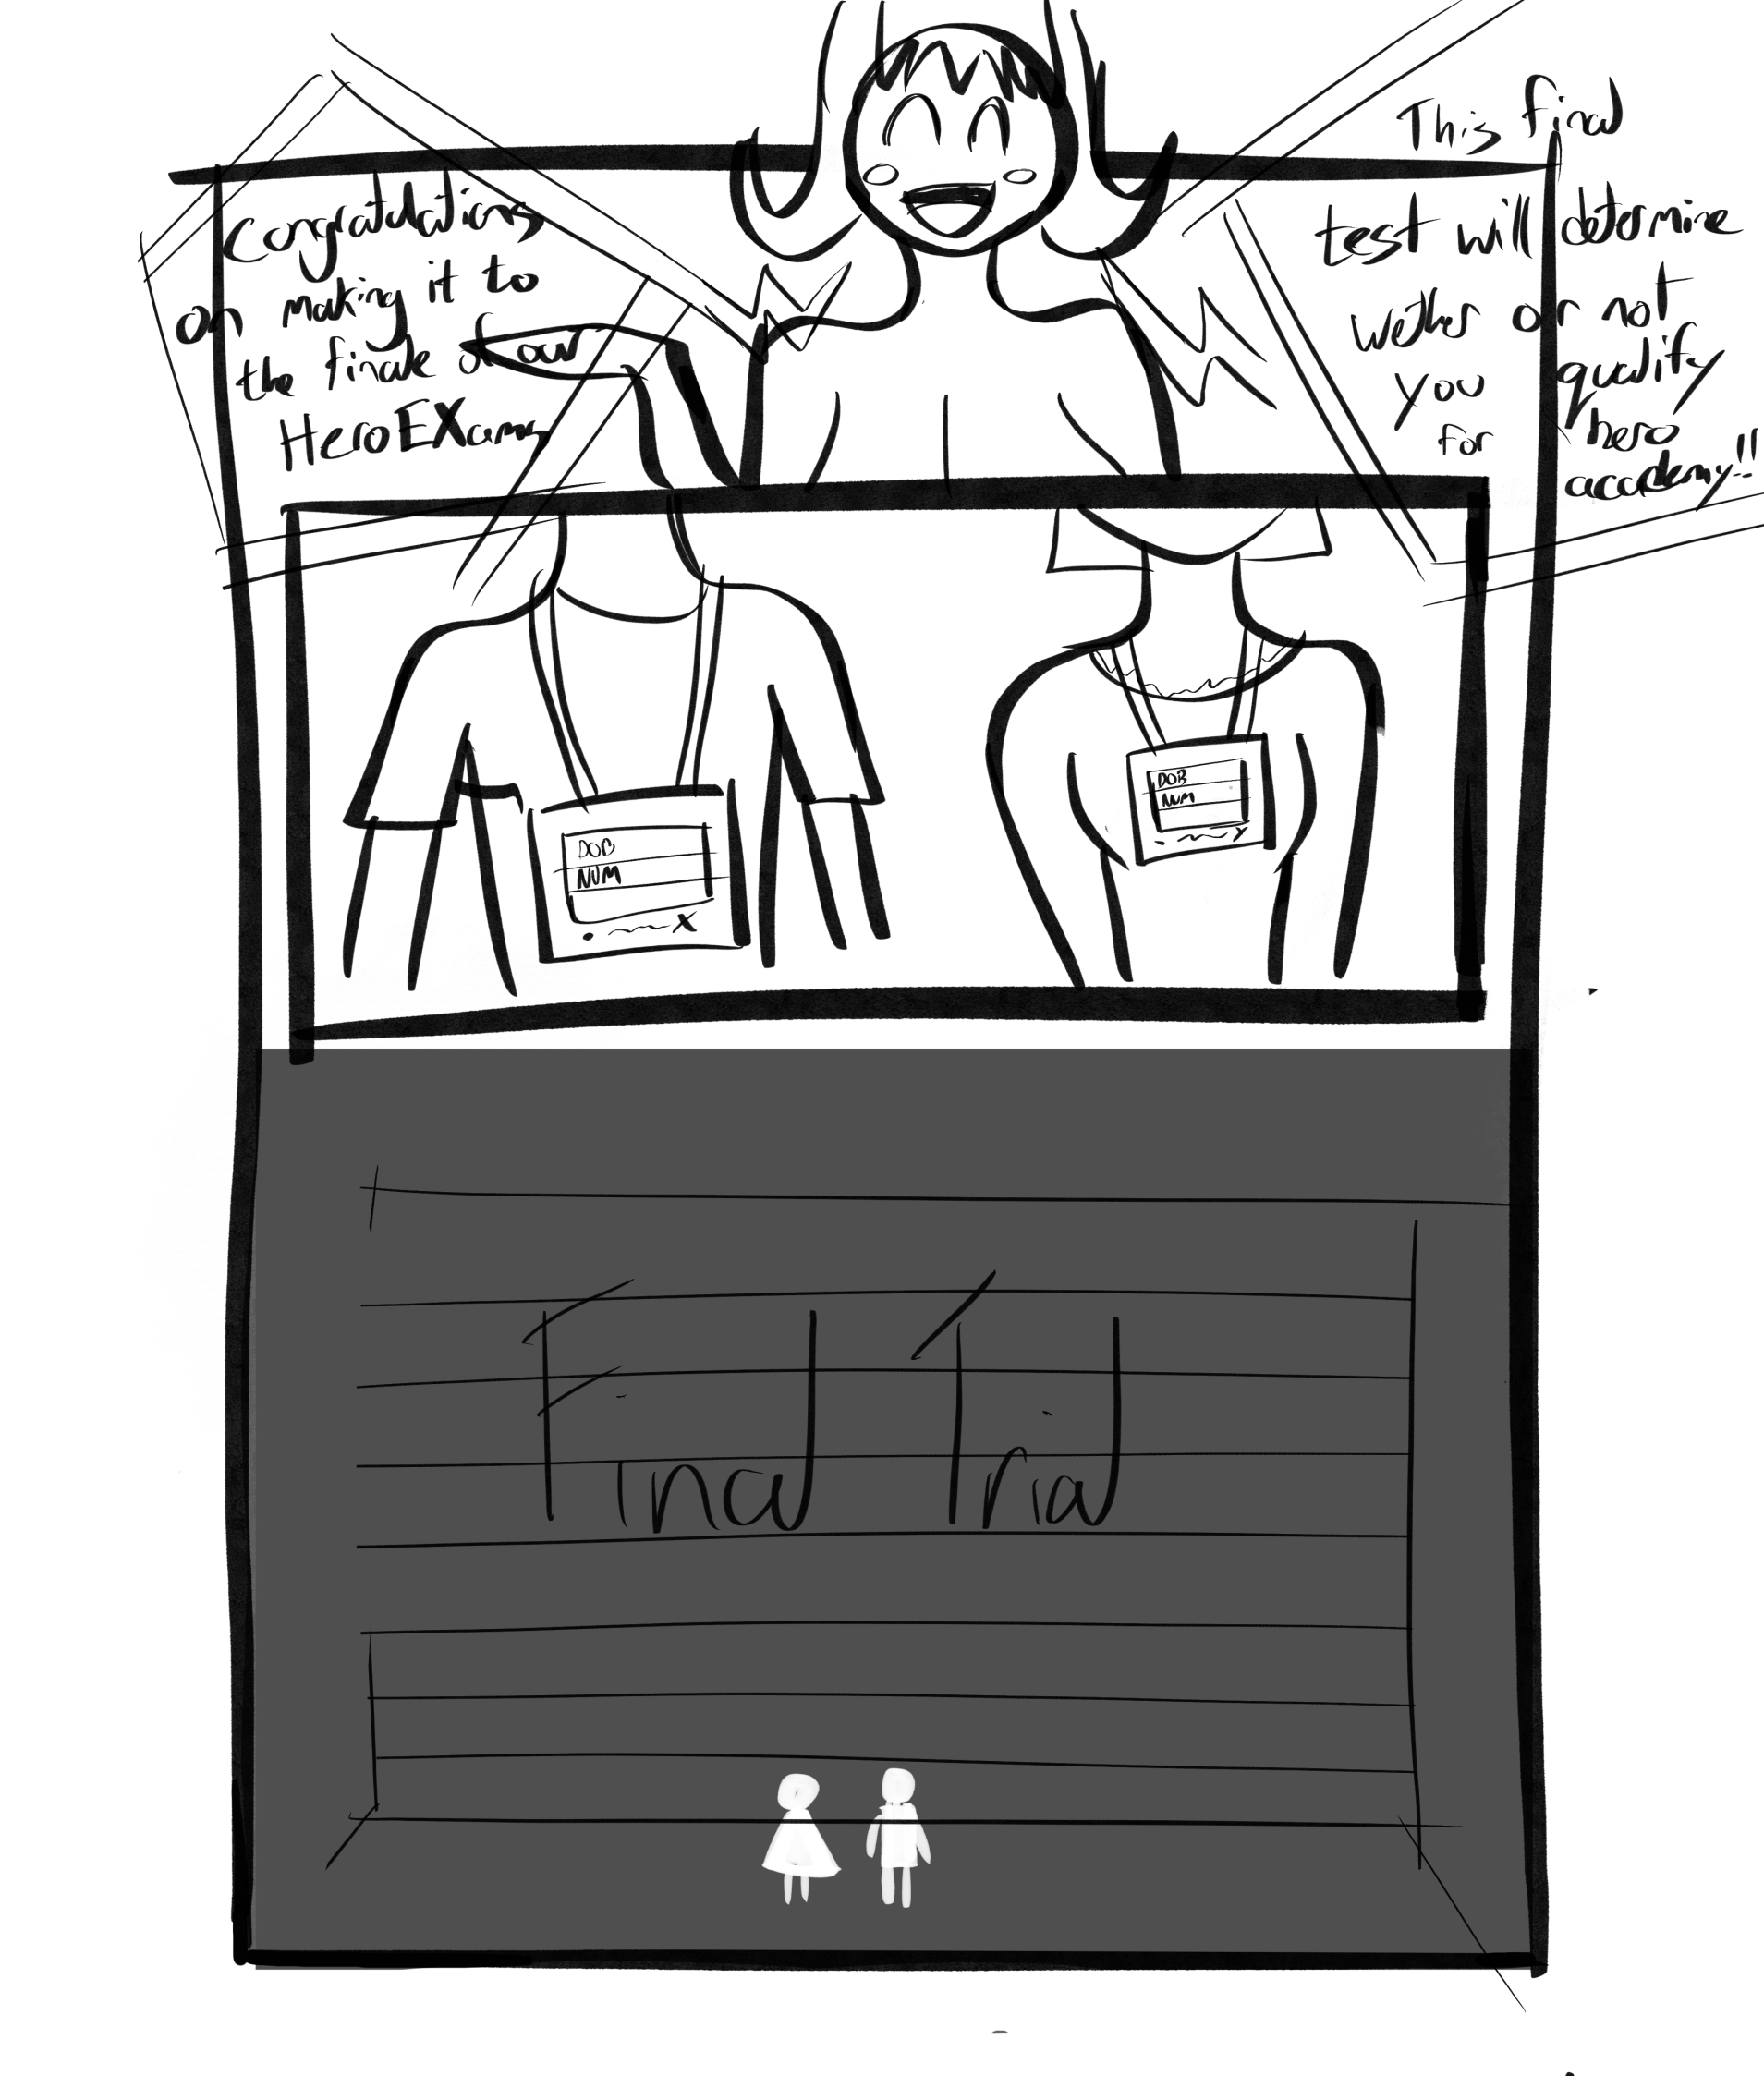 Congratulations
on making it to
the finale of our
Hero EXams
This final
test will determine
wether or not
you qualify
for hero
accademy!!
DOB
NUM
X
DOB
NUM
Y
Final Trial